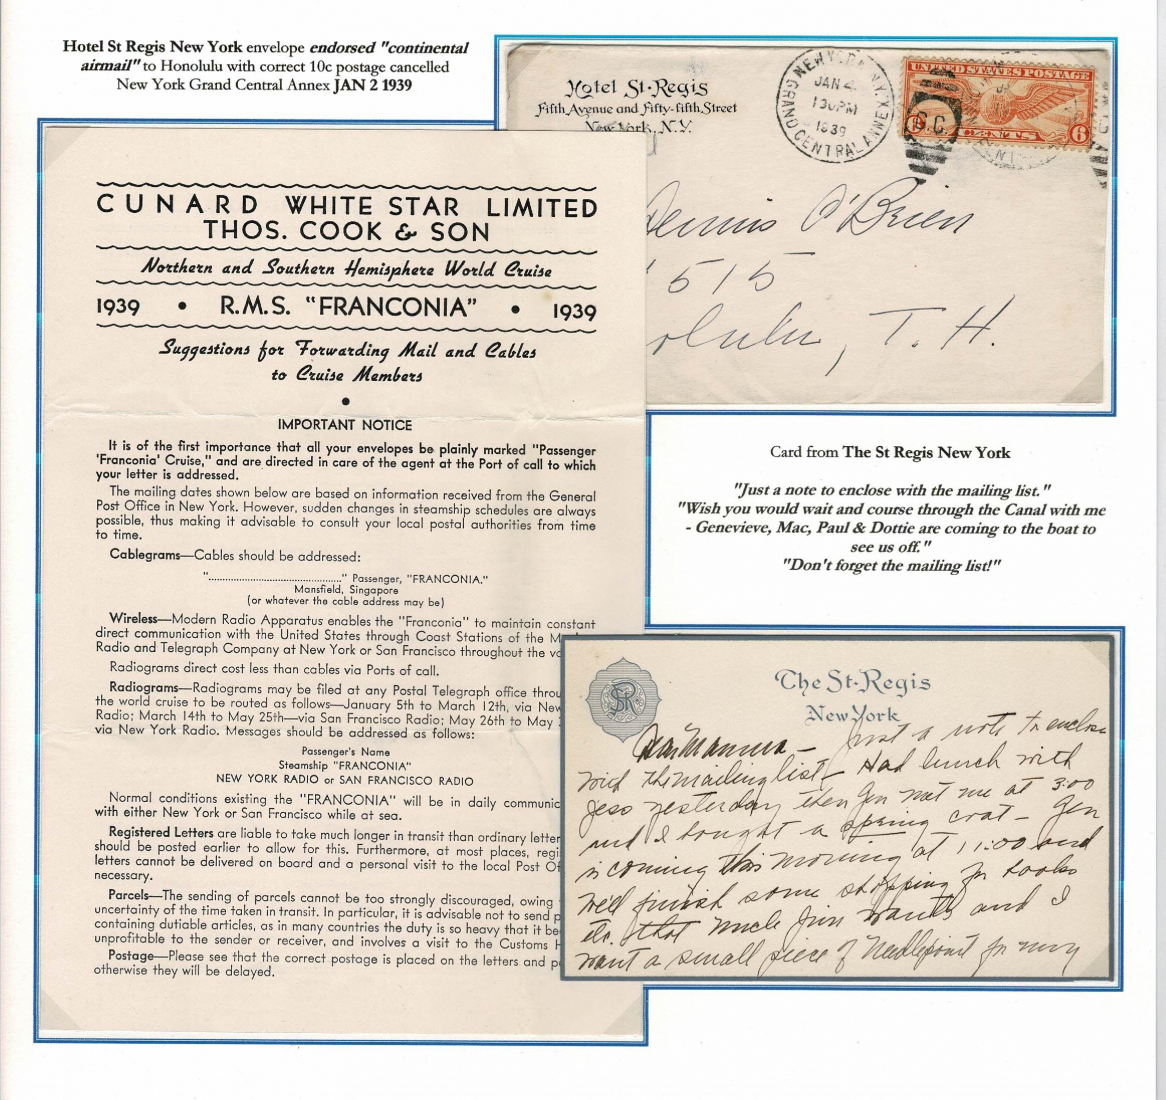 Hotel St Regis New York envelope endorsed "continental
airmail" to Honolulu with correct 10c postage cancelled
New York Grand Central Annex JAN 2 1939
Hotel St·Regis
Fifth Avenue and Fifty-fifth Street
New York, N.Y.
NEW YORK, N.Y.
JAN 2
1 30 PM
1939
GRAND CENTRAL ANNEX
UNITED STATES POSTAGE
G.C.
CENTS
6
Dennis O'Brien
1515
olulu, T. H.
CUNARD WHITE STAR LIMITED
THOS. COOK & SON
Northern and Southern Hemisphere World Cruise
1939 • R.M.S. "FRANCONIA" • 1939
Suggestions for Forwarding Mail and Cables
to Cruise Members
•
IMPORTANT NOTICE
It is of the first importance that all your envelopes be plainly marked "Passenger
'Franconia' Cruise," and are directed in care of the agent at the Port of call to which
your letter is addressed.
The mailing dates shown below are based on information received from the General
Post Office in New York. However, sudden changes in steamship schedules are always
possible, thus making it advisable to consult your local postal authorities from time
to time.
Cablegrams—Cables should be addressed:
"........................................" Passenger, "FRANCONIA."
Mansfield, Singapore
(or whatever the cable address may be)
Wireless—Modern Radio Apparatus enables the "Franconia" to maintain constant
direct communication with the United States through Coast Stations of the M
Radio and Telegraph Company at New York or San Francisco throughout the vo
Radiograms direct cost less than cables via Ports of call.
Radiograms—Radiograms may be filed at any Postal Telegraph office throu
the world cruise to be routed as follows—January 5th to March 12th, via New
Radio; March 14th to May 25th—via San Francisco Radio; May 26th to May
via New York Radio. Messages should be addressed as follows:
Passenger's Name
Steamship "FRANCONIA"
NEW YORK RADIO or SAN FRANCISCO RADIO
Normal conditions existing the "FRANCONIA" will be in daily communic
with either New York or San Francisco while at sea.
Registered Letters are liable to take much longer in transit than ordinary letter
should be posted earlier to allow for this. Furthermore, at most places, regi
letters cannot be delivered on board and a personal visit to the local Post Of
necessary.
Parcels—The sending of parcels cannot be too strongly discouraged, owing
uncertainty of the time taken in transit. In particular, it is advisable not to send p
containing dutiable articles, as in many countries the duty is so heavy that it be
unprofitable to the sender or receiver, and involves a visit to the Customs H
Postage—Please see that the correct postage is placed on the letters and p
otherwise they will be delayed.
Card from The St Regis New York
"Just a note to enclose with the mailing list."
"Wish you would wait and course through the Canal with me
- Genevieve, Mac, Paul & Dottie are coming to the boat to
see us off."
"Don't forget the mailing list!"
The St·Regis
New York
Dear Mamma — Just a note to enclose
with the mailing list — Had lunch with
Jess yesterday then Gen met me at 3:00
and I bought a spring coat — Gen
is coming this morning at 1:00 and
we'll finish some shopping for books
etc. that Uncle Jim wants and I
want a small piece of Needlepoint for my